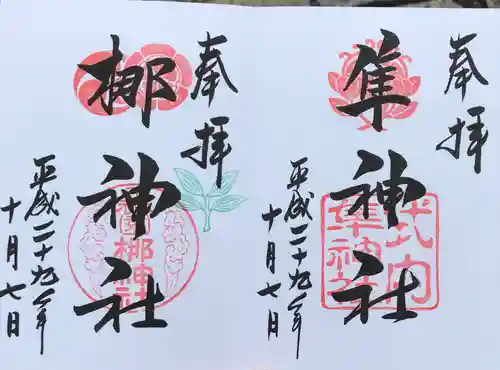 奉拝
隼神社
平成二十九年
十月七日
式内
隼神社
奉拝
梛神社
平成二十九年
十月七日
梛神社